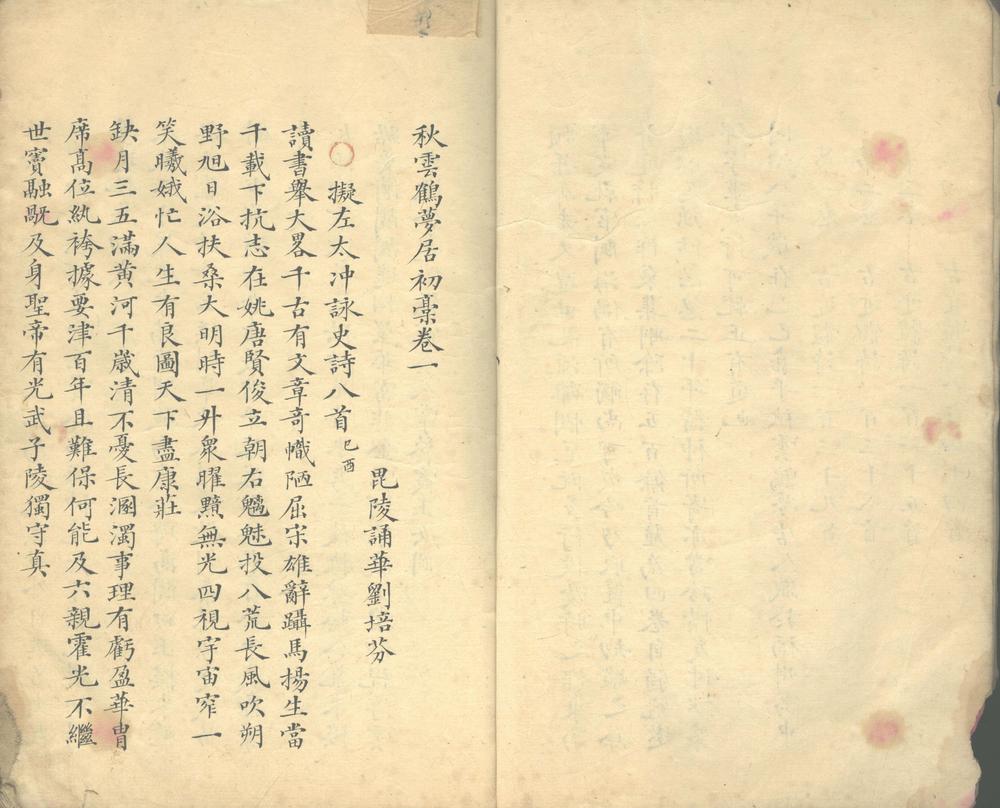 秋雲鶴夢居初稾卷一
毘陵誦華劉培芬
擬左太冲詠史詩八首己酉
讀書舉大畧千古有文章奇幟陋屈宋雄辭躡馬揚生當
千載下抗志在姚唐賢俊立朝右魑魅投八荒長風吹朔
野旭日浴扶桑大明時一升衆曜黯無光四視宇宙窄一
笑曦娥忙人生有良圖天下盡康莊
缺月三五滿黄河千歲清不憂長溷濁事理有虧盈華胄
席高位紈袴據要津百年且難保何能及六親霍光不繼
世竇融戹及身聖帝有光武子陵獨守真